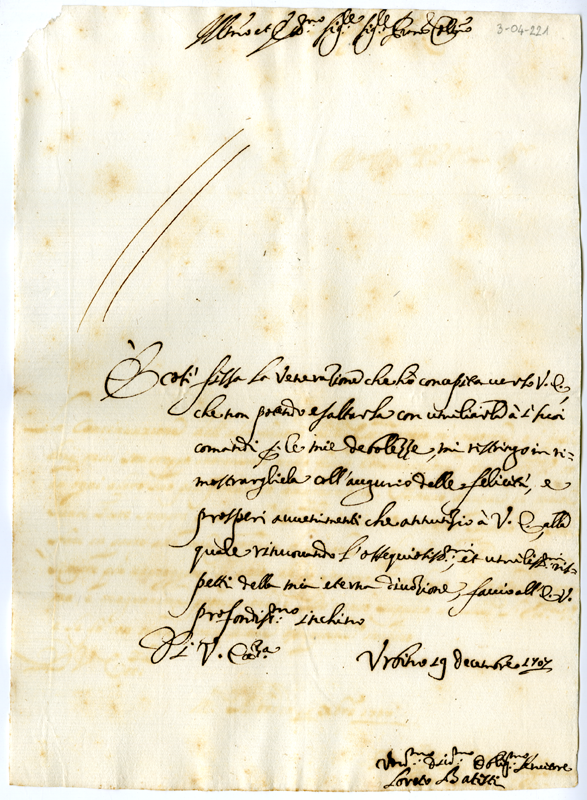 Ill.mo et Ecc.mo Sig.re Sig.re Pron Col.mo
3-04-221
È così fissa la Veneratione che ho concepita verso V. E.,
che non potendo esaltarla con umiliarla à i suoi
comandi p. le mie debolezze, mi ristringo in ri=
mostrargliela coll'augurio delle felicità, e
prosperi avvenimenti che annunzio à V. E., alla
quale rinuovando l'ossequiosiss.mi, et umilissimi ris-
petti della mia eterna divozione, faccio all'E. V.
profondiss.mo inchino
Di V. Ecc.za
Urbino 19 decembre 1707
Um.mo Div.mo Obblig.mo Servitore
Loreto Batisti